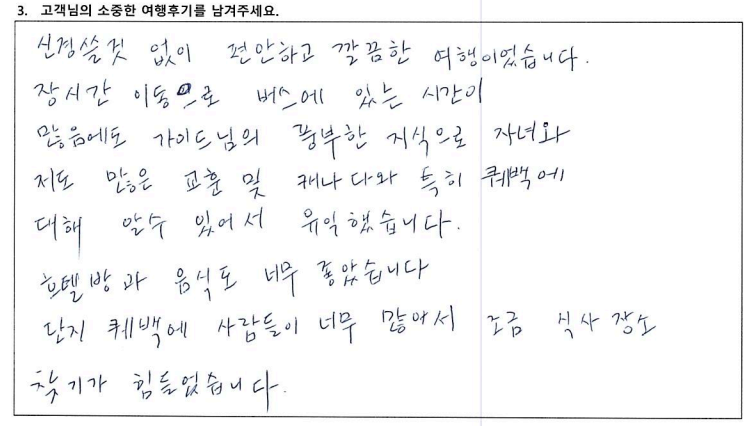 3. 고객님의 소중한 여행후기를 남겨주세요.
신경쓸것 없이 편안하고 깔끔한 여행이었습니다.
장시간 이동으로 버스에 있는 시간이
많음에도 가이드님의 풍부한 지식으로 자녀와
저도 많은 교훈 및 캐나다와 특히 퀘백에
대해 알수 있어서 유익했습니다.
호텔방과 음식도 너무 좋았습니다
단지 퀘백에 사람들이 너무 많아서 조금 식사 장소
찾기가 힘들었습니다.